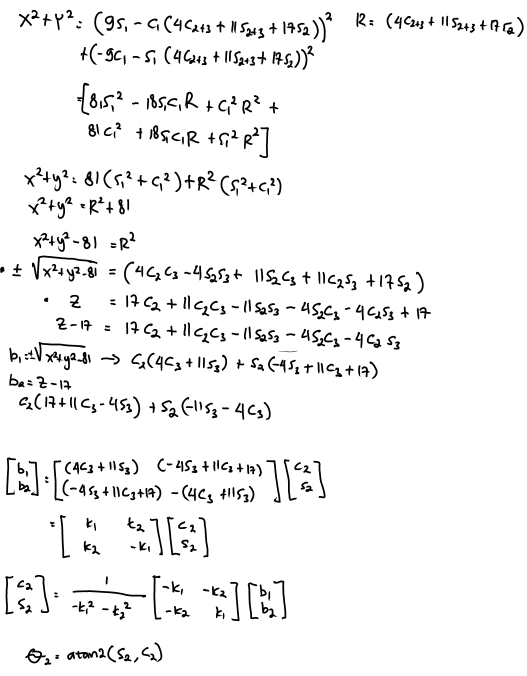 x²+y² = (9s₁ - c₁(4c₂₊₃ + 11s₂₊₃ + 17s₂))²   R = (4c₂₊₃ + 11s₂₊₃ + 17s₂)
+(-9c₁ - s₁(4c₂₊₃ + 11s₂₊₃ + 17s₂))²
=[81s₁² - 18s₁c₁R + c₁²R² +
81c₁² + 18s₁c₁R + s₁²R²]
x²+y² = 81(s₁²+c₁²)+R²(s₁²+c₁²)
x²+y² = R²+81
x²+y²-81 = R²
• ± √x²+y²-81 = (4c₂c₃ - 4s₂s₃ + 11s₂c₃ + 11c₂s₃ + 17s₂)
• z = 17c₂ + 11c₂c₃ - 11s₂s₃ - 4s₂c₃ - 4c₂s₃ + 17
z-17 = 17c₂ + 11c₂c₃ - 11s₂s₃ - 4s₂c₃ - 4c₂s₃
b₁=±√x²+y²-81 → c₂(4c₃ + 11s₃) + s₂(-4s₃ + 11c₃ + 17)
b₂ = z-17
c₂(17+11c₃-4s₃) + s₂(-11s₃-4c₃)
[b₁] = [(4c₃+11s₃) (-4s₃+11c₃+17)] [c₂]
[b₂] [(-4s₃+11c₃+17) -(4c₃+11s₃)] [s₂]
= [k₁ k₂] [c₂]
[k₂ -k₁] [s₂]
[c₂] = 1/(-k₁²-k₂²) [-k₁ -k₂] [b₁]
[s₂] [-k₂ k₁] [b₂]
θ₂ = atan2(s₂, c₂)